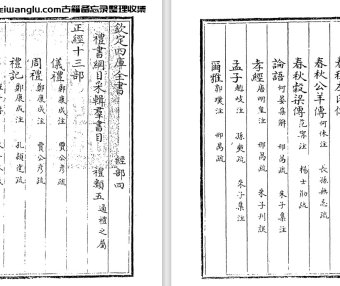 eiwanglu.com古籍备忘录整理收集
欽定四庫全書
經部四
禮書綱目采輯羣書目
禮類五通禮之屬
正經十三部
儀禮鄭康成注 賈公彥疏
周禮鄭康成注 賈公彥疏
禮記鄭康成注 孔穎達疏
春秋公羊傳何休注
春秋穀梁傳范甯注 楊士勛疏
論語何晏集解 邢昺疏 朱子集注
孝經唐明皇注 邢昺疏 朱子刊誤
孟子趙岐注 孫奭疏 朱子集注
爾雅郭璞注 邢昺疏